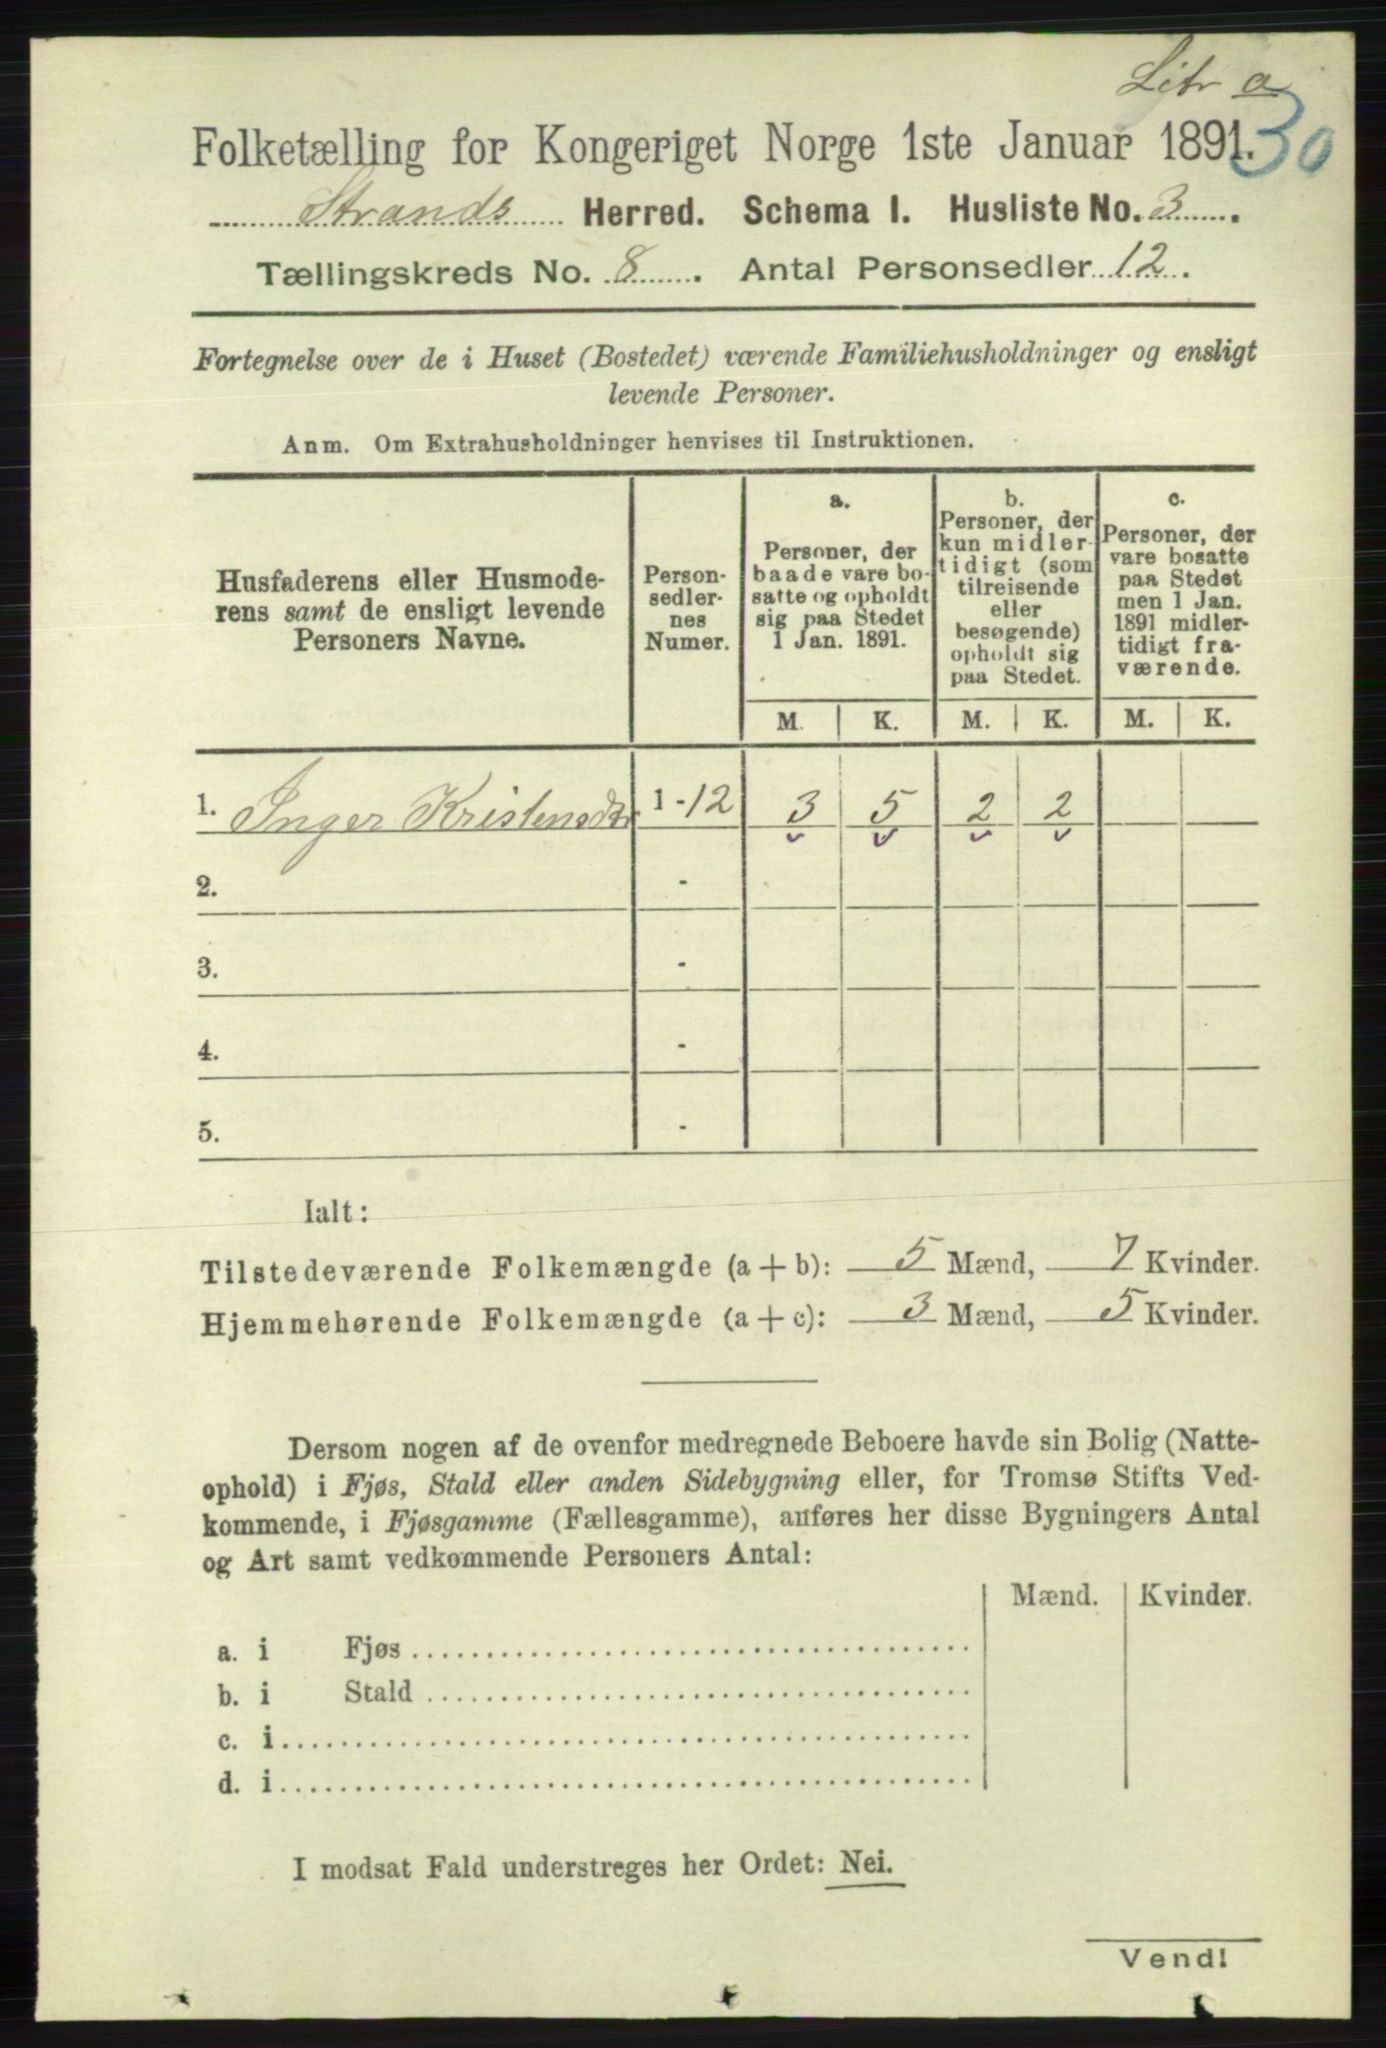 Litr a
30
Folketælling for Kongeriget Norge 1ste Januar 1891.
Strands Herred. Schema I. Husliste No. 3.
Tællingskreds No. 8. Antal Personsedler 12.
Fortegnelse over de i Huset (Bostedet) værende Familiehusholdninger og ensligt
levende Personer.
Anm. Om Extrahusholdninger henvises til Instruktionen.
Husfaderens eller Husmode-
rens samt de ensligt levende
Personers Navne.
Person-
sedler-
nes
Numer.
a.
Personer, der
baade vare bo-
satte og opholdt
sig paa Stedet
1 Jan. 1891.
b.
Personer, der
kun midler-
tidigt (som
tilreisende
eller
besøgende)
opholdt sig
paa Stedet.
c.
Personer, der
vare bosatte
paa Stedet
men 1 Jan.
1891 midler-
tidigt fra-
værende.
M. K. M. K. M. K.
1. Inger Kristensdtr 1 - 12 3 5 2 2
2. -
3. -
4. -
5. -
Ialt:
Tilstedeværende Folkemængde (a + b): 5 Mænd, 7 Kvinder.
Hjemmehørende Folkemængde (a + c): 3 Mænd, 5 Kvinder.
Dersom nogen af de ovenfor medregnede Beboere havde sin Bolig (Natte-
ophold) i Fjøs, Stald eller anden Sidebygning eller, for Tromsø Stifts Ved-
kommende, i Fjøsgamme (Fællesgamme), anføres her disse Bygningers Antal
og Art samt vedkommende Personers Antal:
Mænd. Kvinder.
a. i Fjøs
b. i Stald
c. i
d. i
I modsat Fald understreges her Ordet: Nei.
Vend!